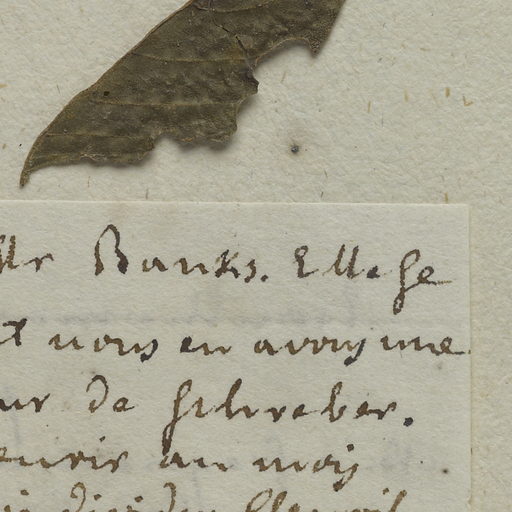 Mr Banks. Elle se
t nous en avons une
ur de Schreber.
eurir au mois